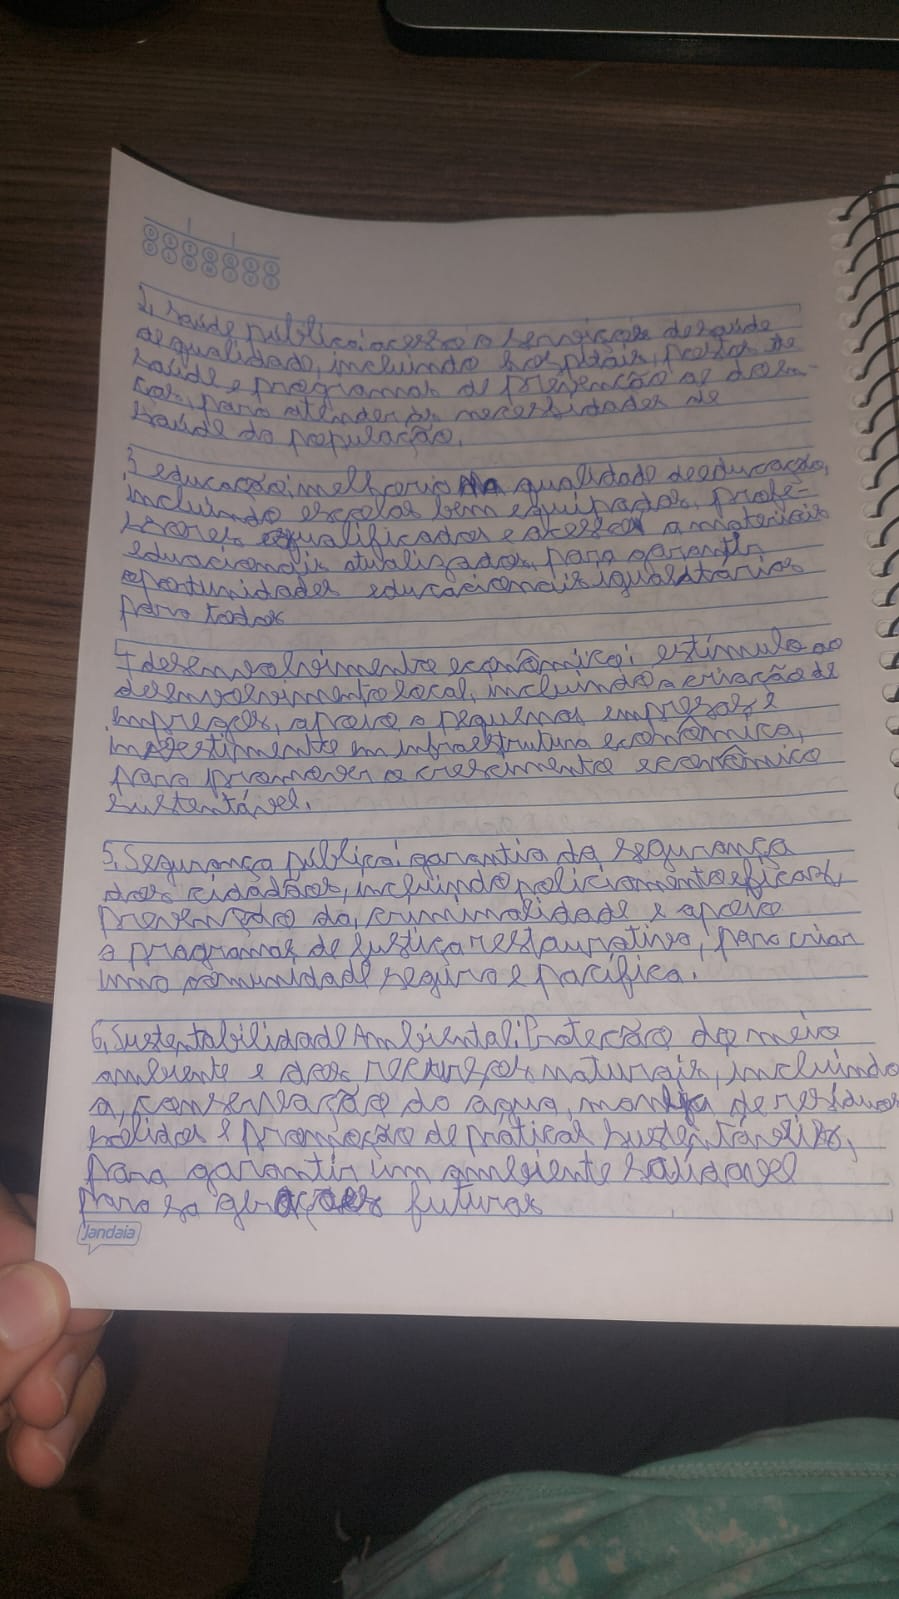 D S T Q Q S S
D L M M J V S
2, saúde pública: acesso a serviços de saúde
de qualidade, incluindo hospitais, postos de
saúde e programas de prevenção de doen-
ças, para atender as necessidades de
saúde da população.
3 educação: melhoria na qualidade de educação,
incluindo escolas bem equipadas, profe-
ssores qualificados e acesso a materiais
educacionais atualizados, para garantir
oportunidades educacionais igualitárias
para todos
4 desenvolvimento econômico: estímulo ao
desenvolvimento local, incluindo a criação de
empregos, apoio a pequenas empresas e
investimento em infraestrutura econômica,
para promover o crescimento econômico
sustentável.
5, Segurança pública: garantia da segurança
dos cidadãos, incluindo policiamento eficaz,
prevenção da, criminalidade e apoio
a programas de justiça restaurativa, para criar
uma comunidade segura e pacífica.
6, Sustentabilidade Ambiental: Proteção do meio
ambiente e dos recursos naturais, incluindo
a, conservação da água, de resíduos
sólidos e promoção de práticas sustentáveis,
para garantir um ambiente saudável
para gerações futuras
Jandaia